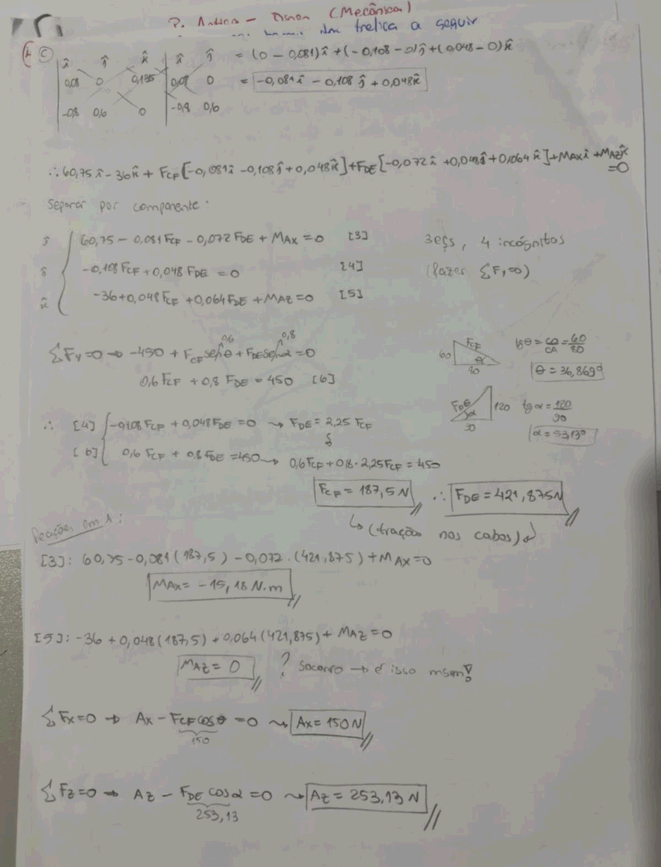 P. Antiga - Dinon (Mecânica)
treliça a seguir
c) | î ĵ k̂ | î ĵ = (0 - 0,081)î + (-0,108 - 0)ĵ + (0,048 - 0)k̂
0,08 0 0,135 | 0,08 0 = -0,081î - 0,108ĵ + 0,048k̂
-0,8 0,6 0 | -0,8 0,6
∴ 60,75î - 36k̂ + FCF[-0,081î - 0,108ĵ + 0,048k̂] + FDE[-0,072î + 0,048ĵ + 0,064k̂] + MAXî + MAZk̂ = 0
Separar por componente:
î { 60,75 - 0,081FCF - 0,072FDE + MAX = 0 [3] 3 eqs, 4 incógnitas
ĵ { -0,108FCF + 0,048FDE = 0 [4] (fazer ΣFy=0)
k̂ { -36 + 0,048FCF + 0,064FDE + MAZ = 0 [5]
ΣFy=0 → -450 + FCF senθ + FDE senα = 0
0,6 0,8
0,6FCF + 0,8FDE = 450 [6]
FCF 60 θ 80 tgθ = co/ca = 60/80
θ = 36,869°
FDE α 120 90 tgα = 120/90
α = 53,13°
∴ [4] { -0,108FCF + 0,048FDE = 0 → FDE = 2,25 FCF
[6] { 0,6FCF + 0,8FDE = 450 → 0,6FCF + 0,8 · 2,25FCF = 450
FCF = 187,5 N ∴ FDE = 421,875 N
↳ (tração nos cabos)
Reações em A:
[3]: 60,75 - 0,081(187,5) - 0,072 · (421,875) + MAX = 0
MAX = -15,18 N.m
[5]: -36 + 0,048(187,5) + 0,064(421,875) + MAZ = 0
MAZ = 0 ? socorro → é isso msm!
ΣFx=0 → Ax - FCF cosθ = 0 → Ax = 150 N
150
ΣFz=0 → Az - FDE cosα = 0 → Az = 253,13 N
253,13